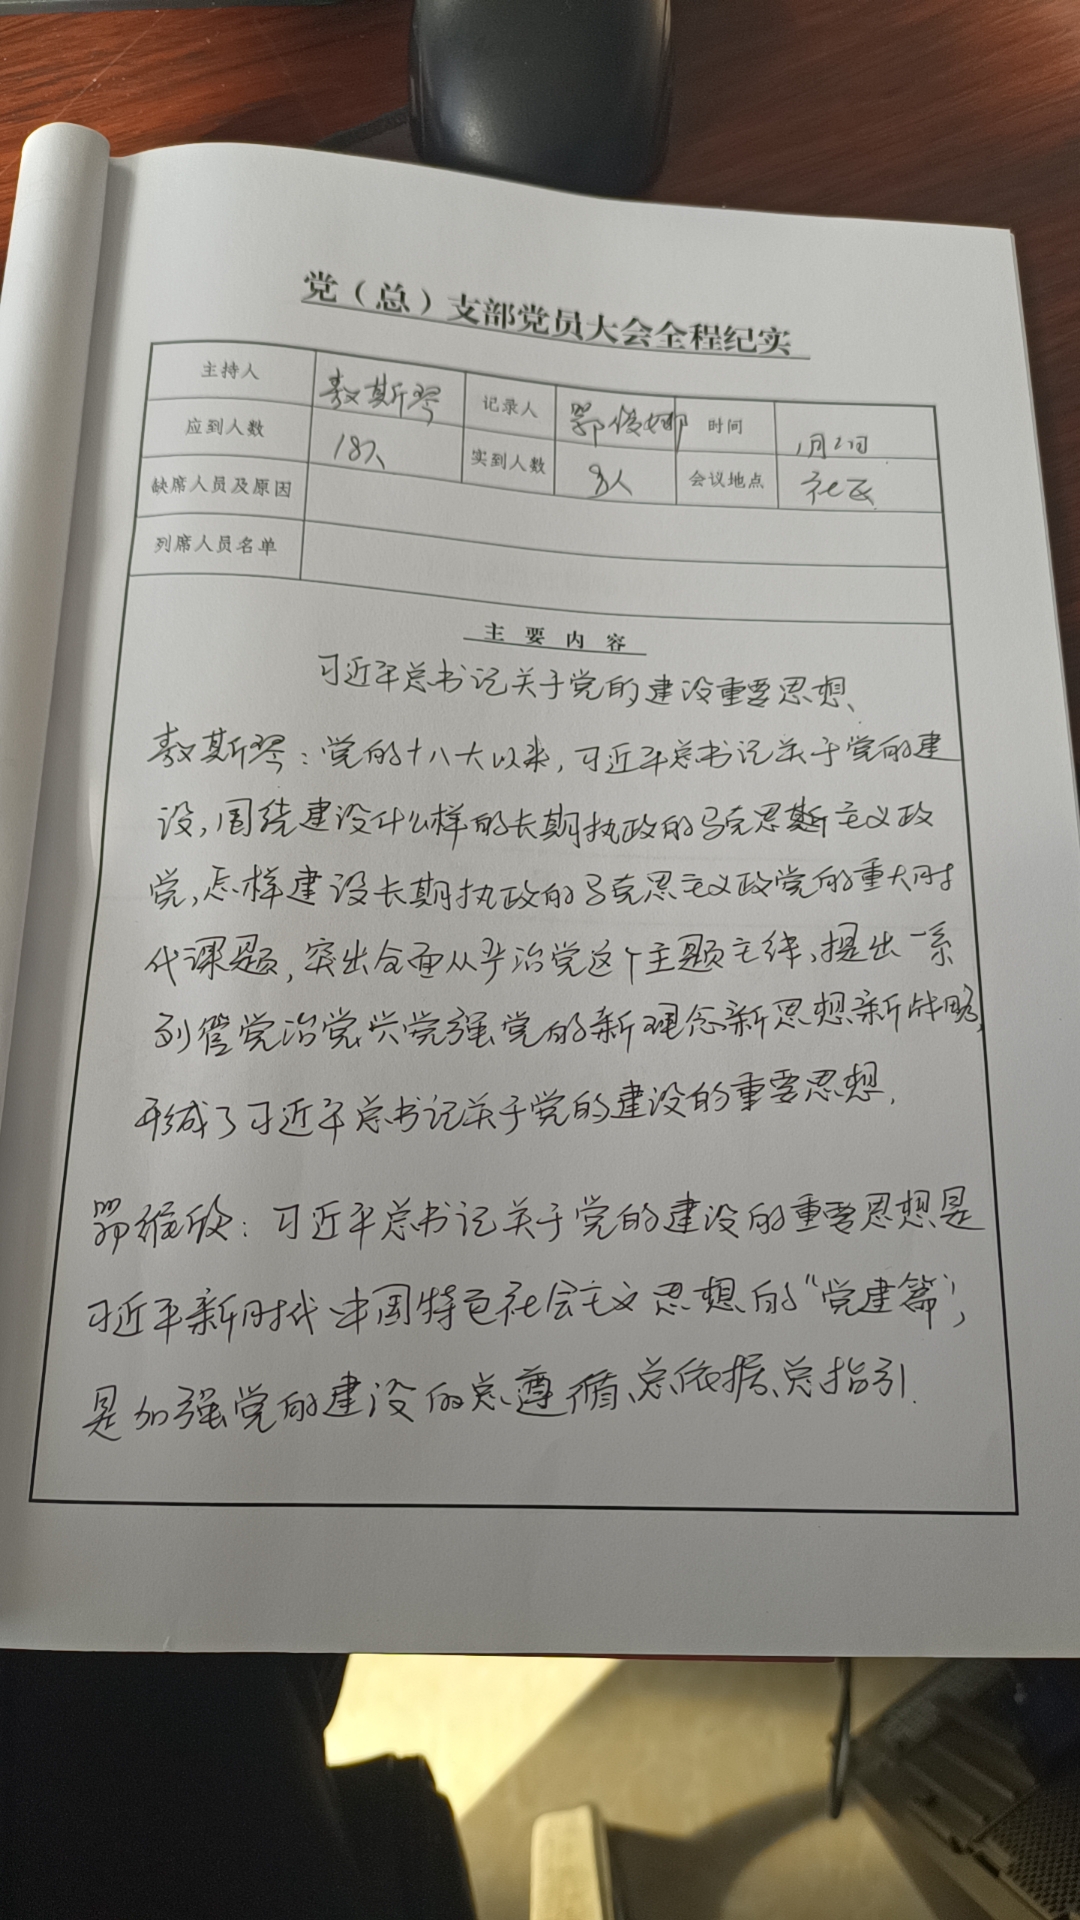 党（总）支部党员大会全程纪实
主持人 敖斯琴 记录人 鄂俊娜 时间 1月2日
应到人数 18人 实到人数 8人 会议地点 社区
缺席人员及原因
列席人员名单
主要内容
习近平总书记关于党的建设重要思想、
敖斯琴：党的十八大以来，习近平总书记关于党的建
设，围绕建设什么样的长期执政的马克思斯主义政
党，怎样建设长期执政的马克思主义政党的重大时
代课题，突出全面从严治党这个主题主律、提出一系
列管党治党、兴党强党的新理念新思想新战略，
形成了习近平总书记关于党的建设的重要思想．
鄂欣：习近平总书记关于党的建设的重要思想是
习近平新时代中国特色社会主义思想的“党建篇”，
是加强党的建设的总遵循、总依据、总指引．